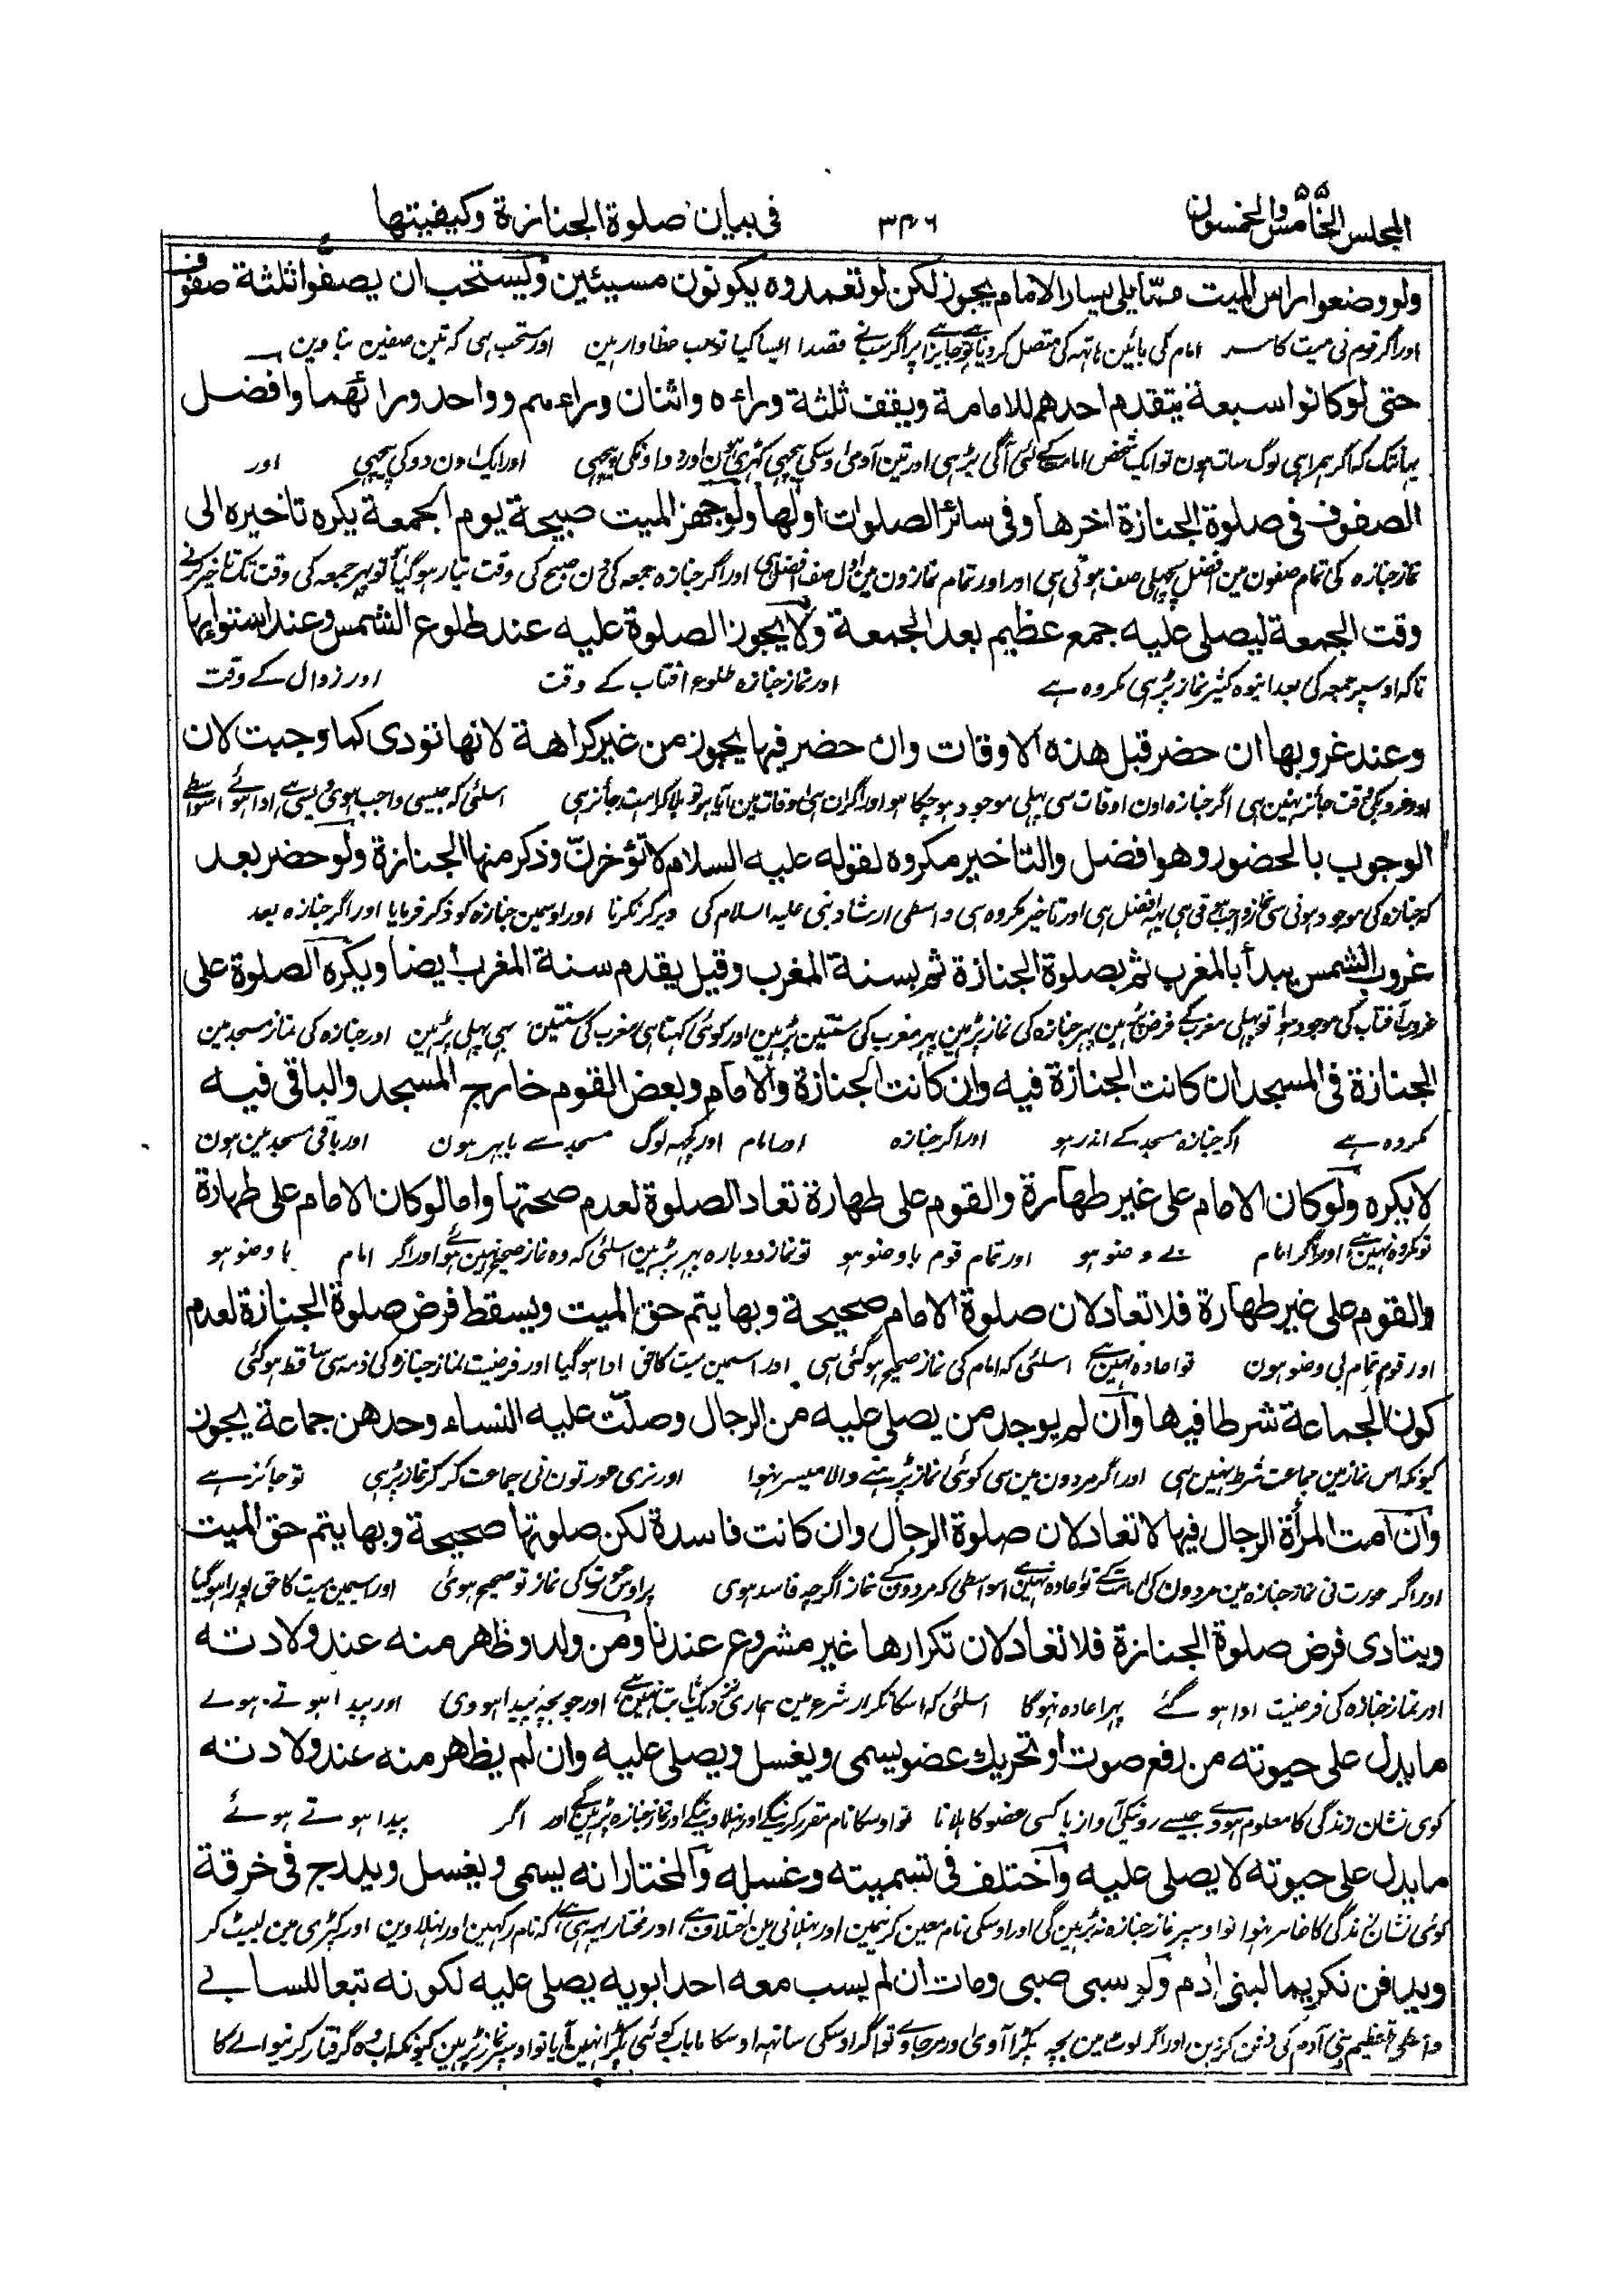 المجلس الخامس والخمسون ۵۵ ۳۴۶ فی بیان صلوة الجنازة وکیفیتها
ولو وضعوا راس المیت مما یلی یسار الامام یجوز لکن لو تعمدوه یکونون مسیئین ویستحب ان یصفوا ثلثة صفوف
اور اگر قوم نی میت کا سر امام کی بائین ہاتہہ کی متصل کر دیا تو جایز ہے پر اگر سب نے قصدا ایسا کیا تو سب خطاوار ہین اور مستحب ہی کہ تین صفین بناوین
حتی لو کانوا سبعة یتقدم احدهم للامامة ویقف ثلثة وراءه واثنان وراءهم وواحد ورائهما وافضل
یہانتک کہ اگر ہمراہی لوگ سات ہون تو ایک شخص امامت کے لئی آگی بڑہی اور تین آدمی اوسکی پیچہی کہڑی ہون اور دو اونکی پیچہی اور ایک اون دو کی پیچہی اور
الصفوف فی صلوة الجنازة اخرها وفی سائر الصلوات اولها ولو جهز المیت صبیحة یوم الجمعة یکره تاخیره الی
نماز جنازہ کی تمام صفون مین افضل پچہلی صف ہوتی ہی اور اور تمام نمازون مین اول صف افضل ہی اور اگر جنازہ جمعہ کی دن صبح کی وقت تیار ہو گیا تو پہر جمعہ کی وقت تک تاخیر کرنے
وقت الجمعة لیصلی علیه جمع عظیم بعد الجمعة ولا یجوز الصلوة علیه عند طلوع الشمس وعند استوائها
تاکہ اوسپر جمعہ کی بعد انبوہ کثیر نماز پڑہی مکروہ ہے اور نماز جنازہ طلوع افتاب کے وقت اور زوال کے وقت
وعند غروبها ان حضر قبل هذه الاوقات وان حضر فیها یجوز من غیر کراهة لانها تؤدی کما وجبت لان
اور غروب کی وقت جائز نہین ہی اگر جنازہ اون اوقات سی پہلی موجود ہو چکا ہو اور اگر ان ہی اوقات مین آیا ہو تو بلا کراہت جائز ہی اسلئی کہ جیسی واجب ہوئی ویسی ہی ادا ہوئے اسواسطے
الوجوب بالحضور وهو افضل والتاخیر مکروه لقوله علیه السلام لا تؤخرن وذکر منها الجنازة ولو حضر بعد
کہ جنازہ کی موجود ہونی سی نماز واجب ہوتی ہی یہہ افضل ہی اور تاخیر مکروہ ہی واسطی ارشاد نبی علیہ السلام کی دیر کر نکرنا اور اوسمین جنازہ کو ذکر فرمایا اور اگر جنازہ بعد
غروب الشمس یبدأ بالمغرب ثم بصلوة الجنازة ثم بسنة المغرب وقیل یقدم سنة المغرب ایضا ویکره الصلوة علی
غروب آفتاب کی موجود ہوا تو پہلی مغرب کے فرض پڑہین پہر جنازہ کی نماز پڑہین پہر مغرب کی سنتین پڑہین اور کوئی کہتا ہی مغرب کی سنتین بہی پہلی پڑہین اور جنازہ کی نماز مسجد مین
الجنازة فی المسجد ان کانت الجنازة فیه وان کانت الجنازة والامام وبعض القوم خارج المسجد والباقی فیه
مکروہ ہے اگر جنازہ مسجد کے اندر ہو اور اگر جنازہ اور امام اور کچہہ لوگ مسجد سے باہر ہون اور باقی مسجد مین ہون
لا یکره ولو کان الامام علی غیر طهارة والقوم علی طهارة تعاد الصلوة لعدم صحتها واما لو کان الامام علی طهارة
تو مکروہ نہین ہے اور اگر امام بے وضو ہو اور تمام قوم باوضو ہو تو نماز دوبارہ پہر پڑہین اسلئی کہ وہ نماز صحیح نہین ہوئے اور اگر امام باوضو ہو
والقوم علی غیر طهارة فلا تعاد لان صلوة الامام صحیحة وبها یتم حق المیت ویسقط فرض صلوة الجنازة لعدم
اور قوم تمام بی وضو ہون تو اعادہ نہین ہے اسلئی کہ امام کی نماز صحیح ہو گئی ہی اور اسمین میت کا حق ادا ہو گیا اور فرضیت نماز جنازہ کی ذمہ سی ساقط ہو گئی
کون الجماعة شرطا فیها وان لم یوجد من یصلی علیه من الرجال وصلت علیه النساء وحدهن جماعة یجوز
کیونکہ اس نماز مین جماعت شرط نہین ہی اور اگر مردون مین سی کوئی نماز پڑہنے والا میسر نہوا اور نری عورتون نی جماعت کر کر نماز پڑہی تو جائز ہے
وان امت المرأة الرجال فیها لا تعاد لان صلوة الرجال وان کانت فاسدة لکن صلوتها صحیحة وبها یتم حق المیت
اور اگر عورت نی نماز جنازہ مین مردون کی امامت کے تو اعادہ نہین ہے اسواسطی کہ مردون کے نماز اگرچہ فاسد ہوی پر اوس عورت کی نماز تو صحیح ہوئی اور اسیمین میت کا حق پورا ہو گیا
ویتادی فرض صلوة الجنازة فلا تعاد لان تکرارها غیر مشروع عندنا ومن ولد وظهر منه عند ولادته
اور نماز جنازہ کی فرضیت ادا ہو گئے پہر اعادہ نہوگا اسلئی کہ اسکا تکرار شرع مین ہماری نزدیک ثابت نہین ہے اور جو بچہ پیدا ہووی اور پیدا ہوتے ہوے
ما یدل علی حیوته من رفع صوت او تحریك عضو یسمی ویغسل ویصلی علیه وان لم یظهر منه عند ولادته
کوی نشان زندگی کا معلوم ہووے جیسے رونیکی آواز یا کسی عضو کا ہلانا تو اوسکا نام مقرر کرینگے اور نہلاوینگے اور نماز جنازہ پڑہین گے اور اگر پیدا ہوتے ہوئے
ما یدل علی حیوته لا یصلی علیه واختلف فی تسمیته وغسله والمختار انه یسمی ویغسل ویدرج فی خرقة
کوئی نشان زندگی کا ظاہر نہوا تو اوسپر نماز جنازہ نہ پڑہین گی اور اوسکی نام معین کرنیمین اور نہلانی مین اختلاف ہے اور مختار یہہ ہی ہے کہ نام رکہین اور نہلاوین اور کپڑی مین لپیٹ کر
ویدفن تکریما لبنی ادم ولو سبی صبی ومات ان لم یسب معه احد ابویه یصلی علیه لکونه تبعا للسابی
واسطی تعظیم بنی آدم کی دفن کرین اور اگر لوٹ مین بچہ پکڑا آوی اور مر جاوے تو اگر اوسکی ساتہہ اوسکا ما باپ کوئی پکڑا نہین آیا تو اوسپر نماز پڑہین کیونکہ اب وہ گرفتار کرنیوالے کا